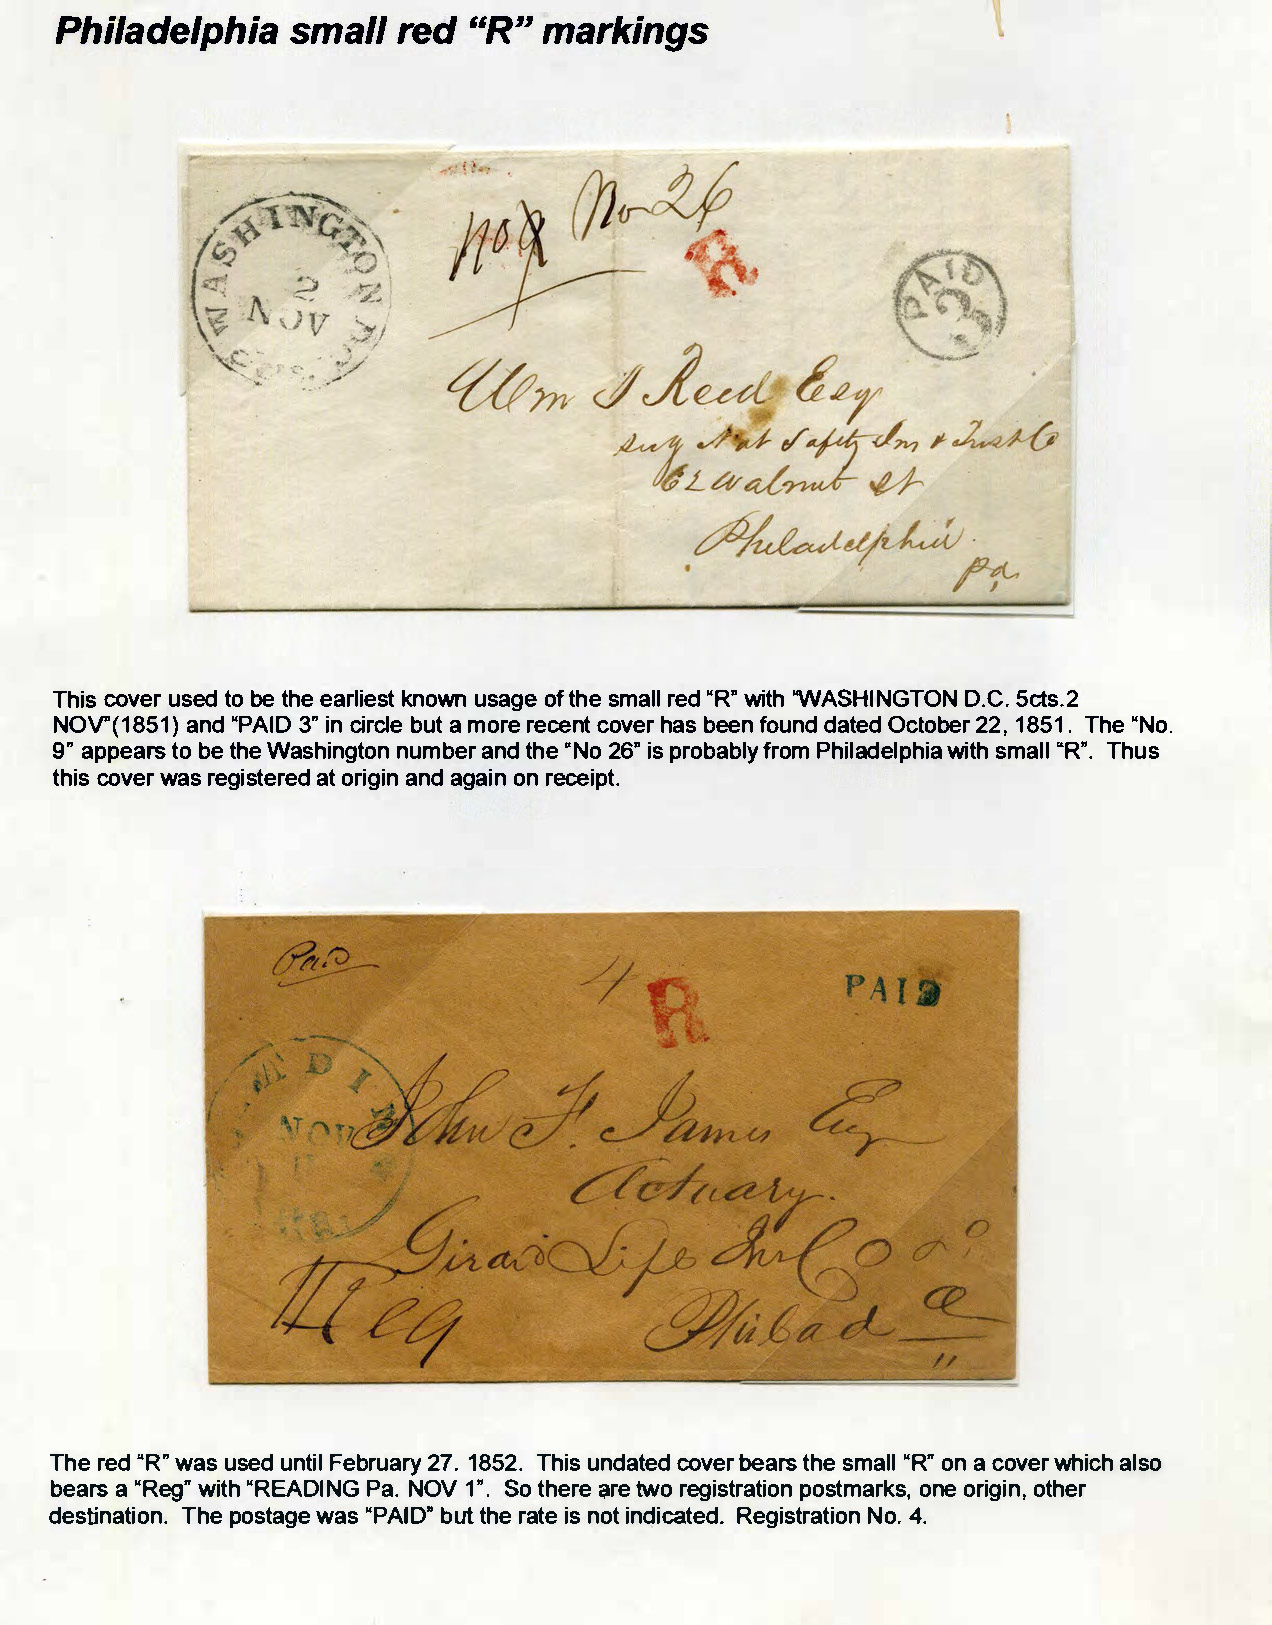 Philadelphia small red “R” markings
WASHINGTON D.C.
2
NOV
No 9
No 26
R
PAID
3
Wm J Reed Esq
Secy Nat Safety Ins & Trust Co
62 Walnut St
Philadelphia
Pa,
This cover used to be the earliest known usage of the small red “R” with “WASHINGTON D.C. 5cts.2
NOV”(1851) and “PAID 3” in circle but a more recent cover has been found dated October 22, 1851. The “No.
9” appears to be the Washington number and the “No 26” is probably from Philadelphia with small “R”. Thus
this cover was registered at origin and again on receipt.
Paid
4
R
PAID
NOV
John F. James Esq
Actuary.
Girard Life Ins Co
Philad
Reg
The red “R” was used until February 27. 1852. This undated cover bears the small “R” on a cover which also
bears a “Reg” with “READING Pa. NOV 1”. So there are two registration postmarks, one origin, other
destination. The postage was “PAID” but the rate is not indicated. Registration No. 4.